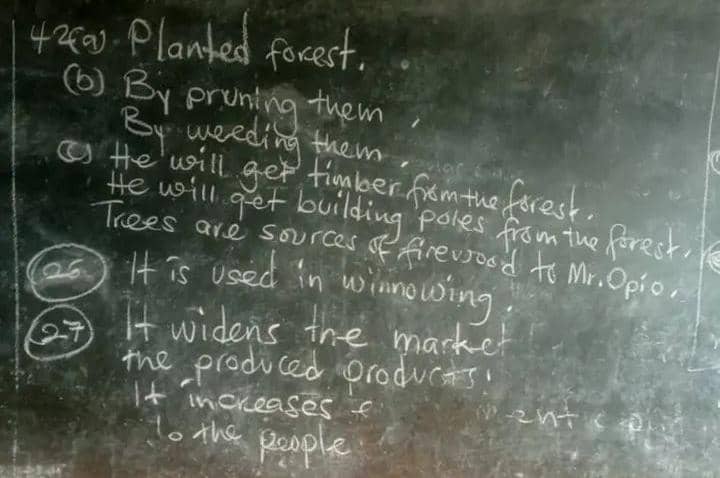 42(a) Planted forest.
(b) By pruning them,
By weeding them.
(c) He will get timber from the forest.
He will get building poles from the forest.
Trees are sources of firewood to Mr. Opio.
26 It is used in winnowing.
27 It widens the market
the produced products.
It increases
to the people